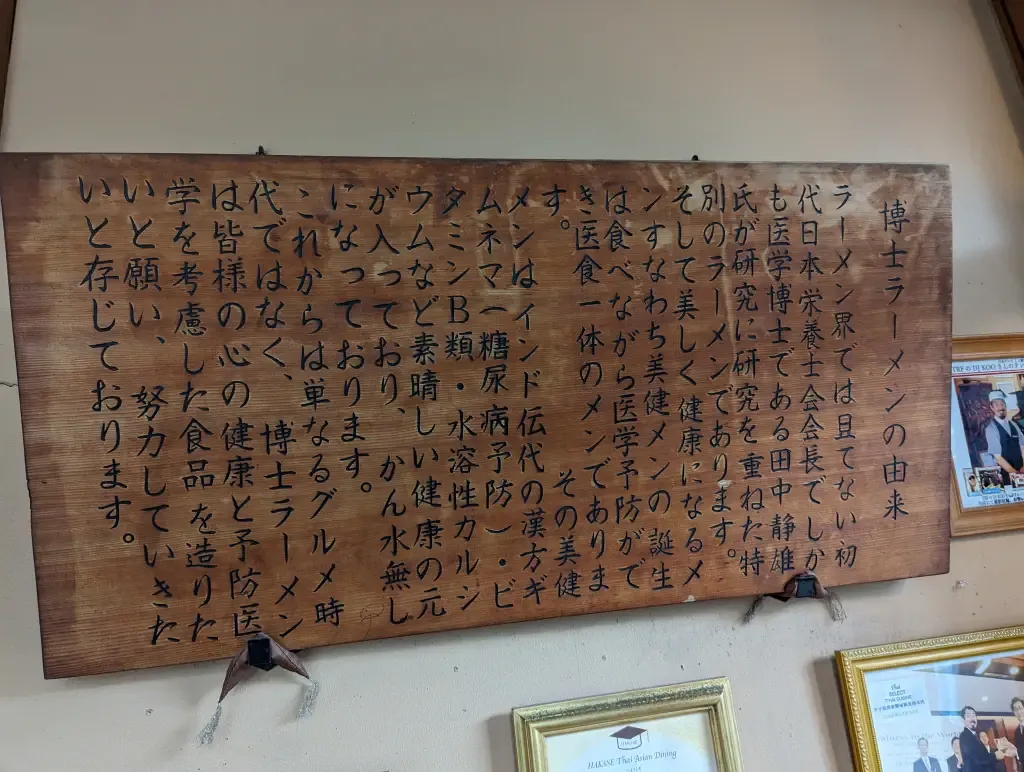 博士ラーメンの由来
ラーメン界では且てない初
代日本栄養士会会長でしか
も医学博士である田中静雄
氏が研究に研究を重ねた特
別のラーメンであります。
そして美しく健康になるメ
ンすなわち美健メンの誕生
は食べながら医学予防がで
き医食一体のメンでありま
す。 その美健
メンはインド伝代の漢方ギ
ムネマ(糖尿病予防)・ビ
タミンB類・水溶性カルシ
ウムなど素晴しい健康の元
が入っており、かん水無し
になっております。
これからは単なるグルメ時
代ではなく、博士ラーメン
は皆様の心の健康と予防医
学を考慮した食品を造りた
いと願い、努力していきた
いと存じております。
HAKASE
HAKASE Thai Asian Dining
Thai
SELECT
THAI CUISINE